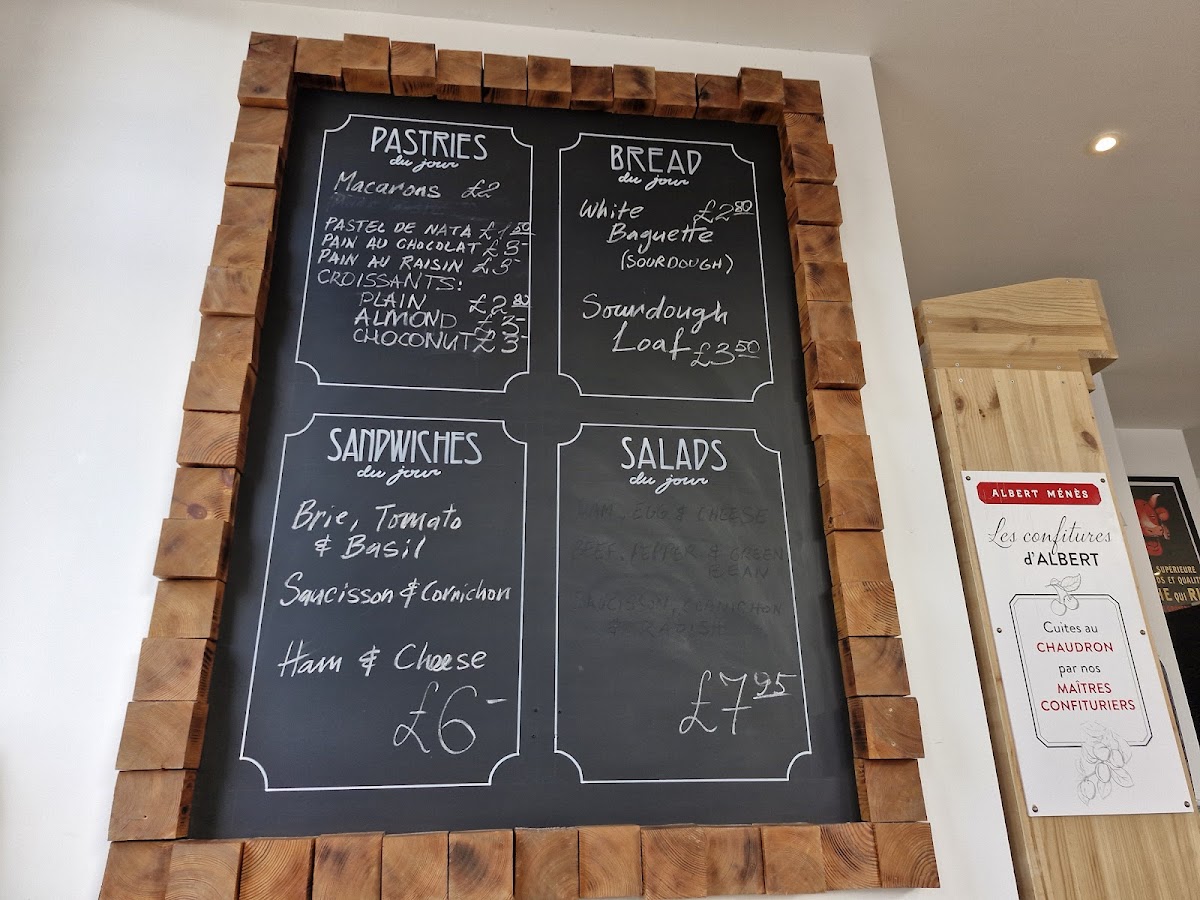 PASTRIES
du jour
Macarons £2
PASTEL DE NATA £1 50
PAIN AU CHOCOLAT £3-
PAIN AU RAISIN £3-
CROISSANTS:
PLAIN £2 80
ALMOND £3-
CHOCONUT £3-
BREAD
du jour
White £2 80
Baguette
(SOURDOUGH)
Sourdough
Loaf £3 50
SANDWICHES
du jour
Brie, Tomato
& Basil
Saucisson & Cornichon
Ham & Cheese
£6-
SALADS
du jour
HAM, EGG & CHEESE
BEEF, PEPPER & GREEN
BEAN
SAUCISSON, CORNICHON
& RADISH
£7 95
ALBERT MÉNÈS
Les confitures
d'ALBERT
Cuites au
CHAUDRON
par nos
MAÎTRES
CONFITURIERS
SUPERIEURE